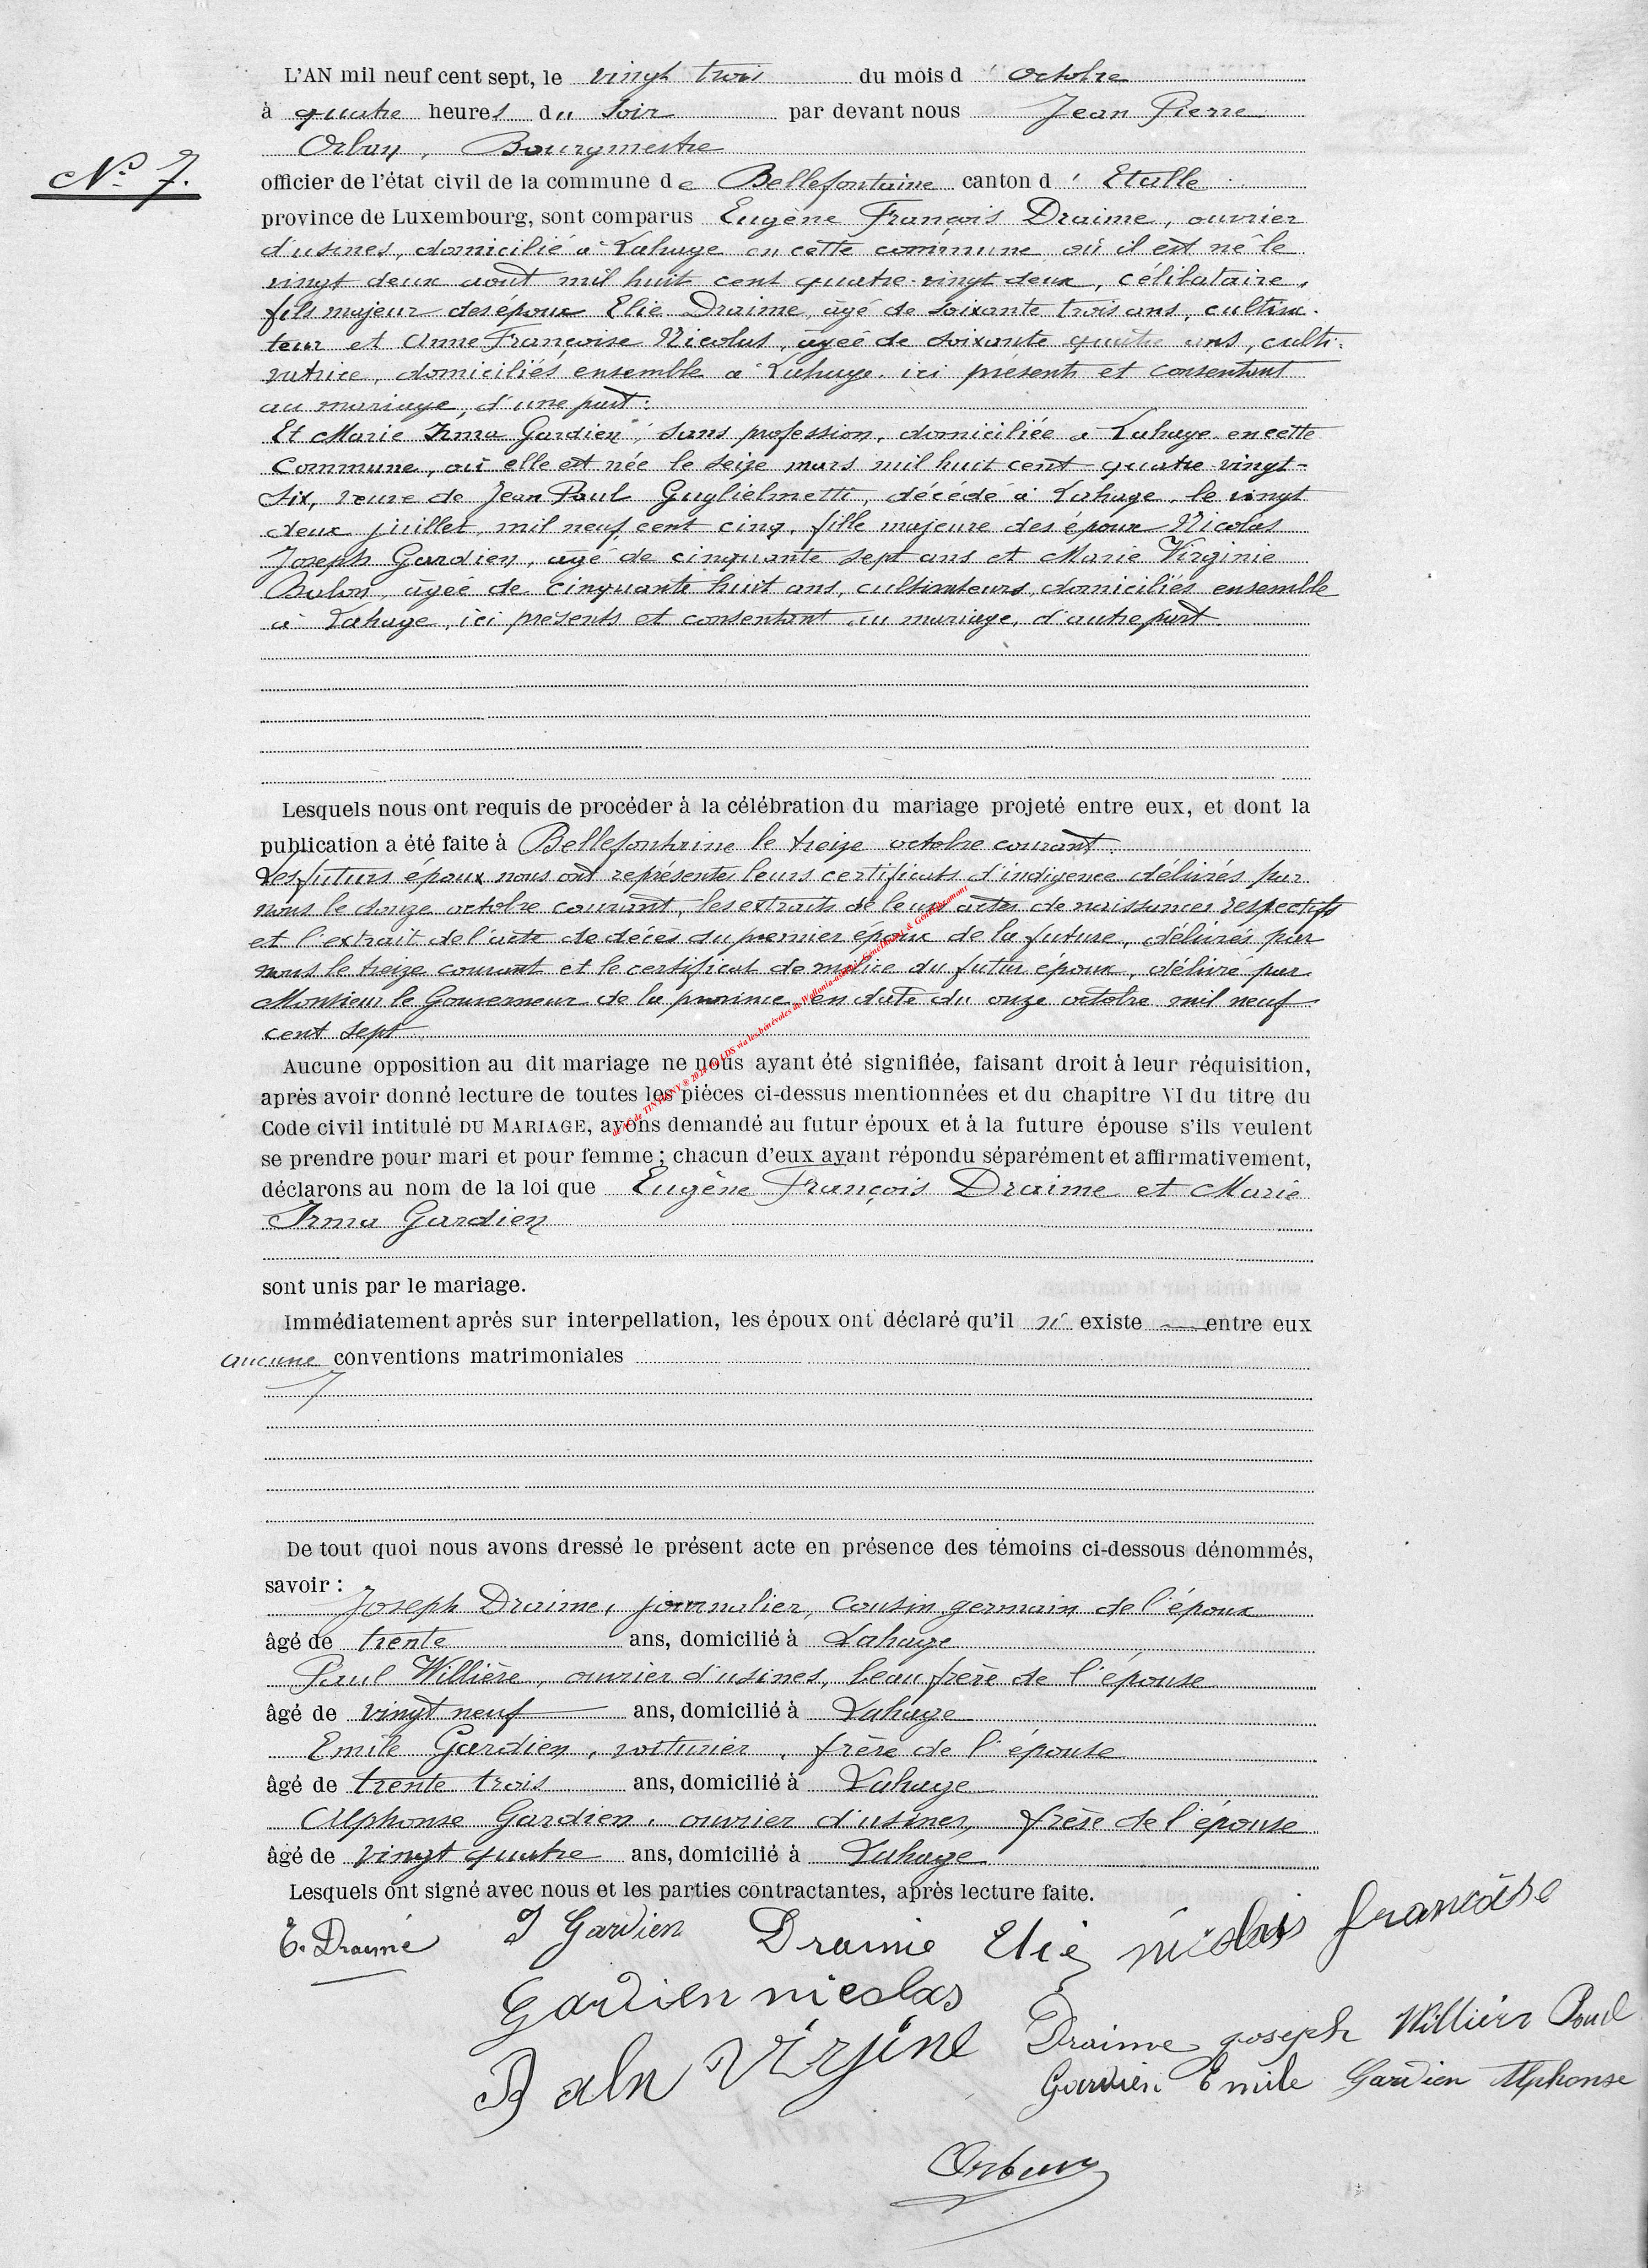 L'AN mil neuf cent sept, le vingt trois du mois d' octobre
à quatre heures du soir par devant nous Jean Pierre
Orban, Bourgmestre
N° 7.
officier de l'état civil de la commune de Bellefontaine canton d' Etalle
province de Luxembourg, sont comparus Eugène François Draime, ouvrier
d'usines, domicilié à Lahage en cette commune où il est né le
vingt deux août mil huit cent quatre-vingt deux, célibataire,
fils majeur des époux Elie Draime, âgé de soixante trois ans, cultiva-
teur et Anne Françoise Nicolas, âgée de soixante quatre ans, culti-
vatrice, domiciliés ensemble à Lahage, ici présents et consentant
au mariage, d'une part:
Et Marie Irma Gardien, sans profession, domiciliée à Lahage en cette
commune, où elle est née le seize mars mil huit cent quatre-vingt-
six, veuve de Jean Paul Guglielmetti, décédé à Lahage, le vingt
deux juillet, mil neuf cent cinq, fille majeure des époux Nicolas
Joseph Gardien, âgé de cinquante sept ans et Marie Virginie
Balon, âgée de cinquante huit ans, cultivateurs, domiciliés ensemble
à Lahage, ici présents et consentant au mariage, d'autre part.
Lesquels nous ont requis de procéder à la célébration du mariage projeté entre eux, et dont la
publication a été faite à Bellefontaine le treize octobre courant.
Les futurs époux nous ont représentés leurs certificats d'indigence délivrés par
nous le douze octobre courant, les extraits de leurs actes de naissances respectifs
et l'extrait de l'acte de décès du premier époux de la future, délivrés par
nous le treize courant et le certificat de milice du futur époux, délivré par
Monsieur le Gouverneur de la province en date du onze octobre mil neuf
cent sept
Aucune opposition au dit mariage ne nous ayant été signifiée, faisant droit à leur réquisition,
après avoir donné lecture de toutes les pièces ci-dessus mentionnées et du chapitre VI du titre du
Code civil intitulé DU MARIAGE, avons demandé au futur époux et à la future épouse s'ils veulent
se prendre pour mari et pour femme; chacun d'eux ayant répondu séparément et affirmativement,
déclarons au nom de la loi que Eugène François Draime et Marie
Irma Gardien
sont unis par le mariage.
Immédiatement après sur interpellation, les époux ont déclaré qu'il n' existe entre eux
aucune conventions matrimoniales
De tout quoi nous avons dressé le présent acte en présence des témoins ci-dessous dénommés,
savoir:
Joseph Draime, journalier, cousin germain de l'époux
âgé de trente ans, domicilié à Lahage
Paul Willière, ouvrier d'usines, beau frère de l'épouse
âgé de vingt neuf ans, domicilié à Lahage
Emile Gardien, voiturier, frère de l'épouse
âgé de trente trois ans, domicilié à Lahage
Alphonse Gardien, ouvrier d'usines, frère de l'épouse
âgé de vingt quatre ans, domicilié à Lahage
Lesquels ont signé avec nous et les parties contractantes, après lecture faite.
E. Draime I Gardien Draime Elie nicolas francoise
Gardien nicolas
Draime joseph Willière Paul
Baln Virjine
Gardien Emile Gardien Alphonse
Orban